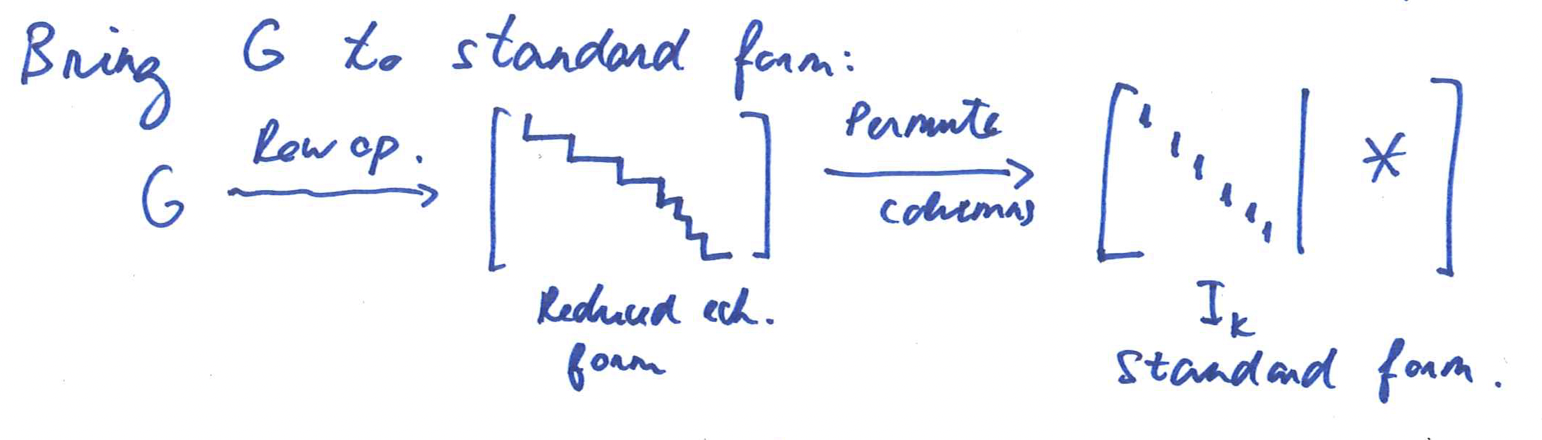 Bring G to standard form:
G Row op. Permute columns *
Reduced ech. form
I_k
standard form.